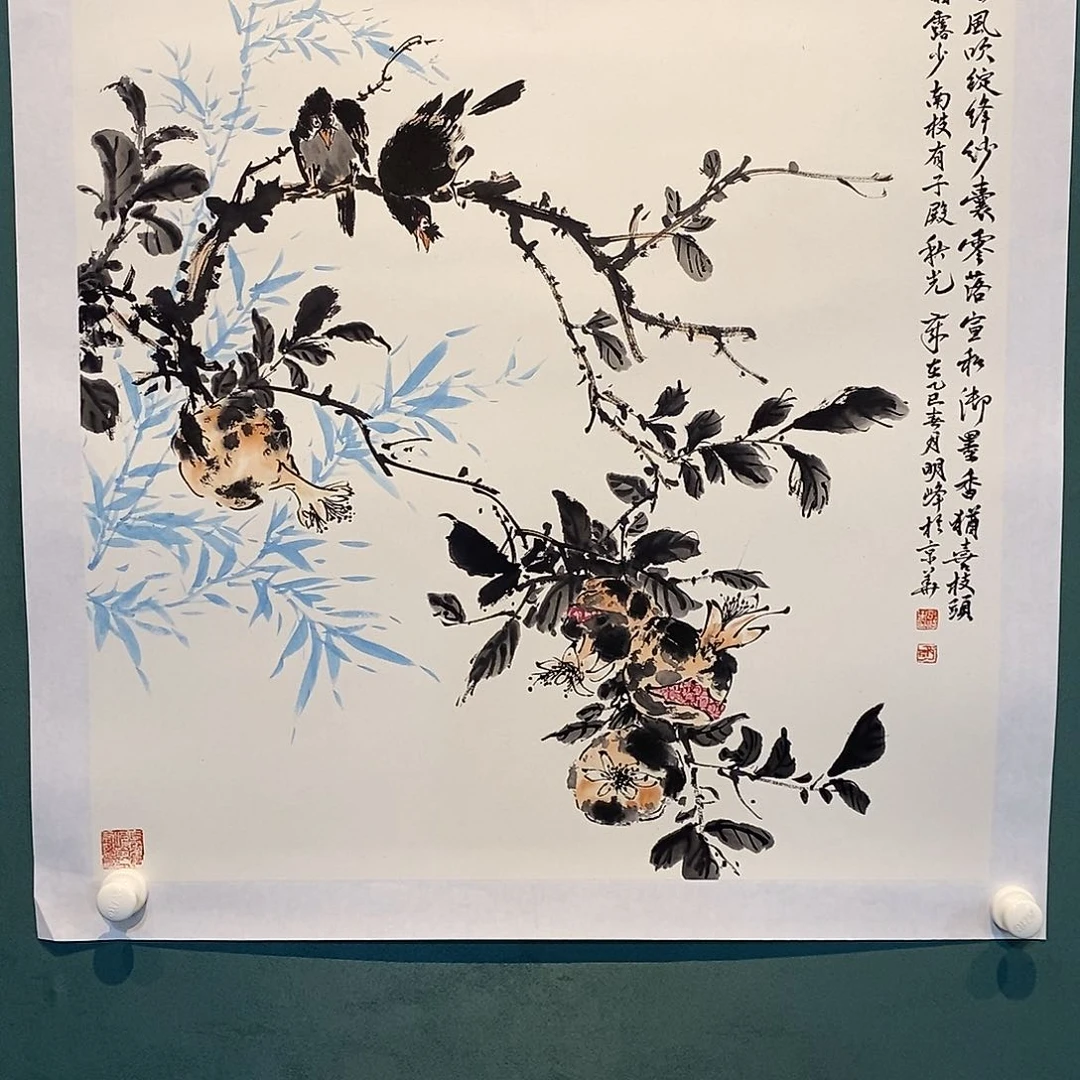 風吹綻絳紗囊零落宣和御墨香猶喜枝頭
露少南枝有子殿秋光 歲在乙巳春月明峰於京華